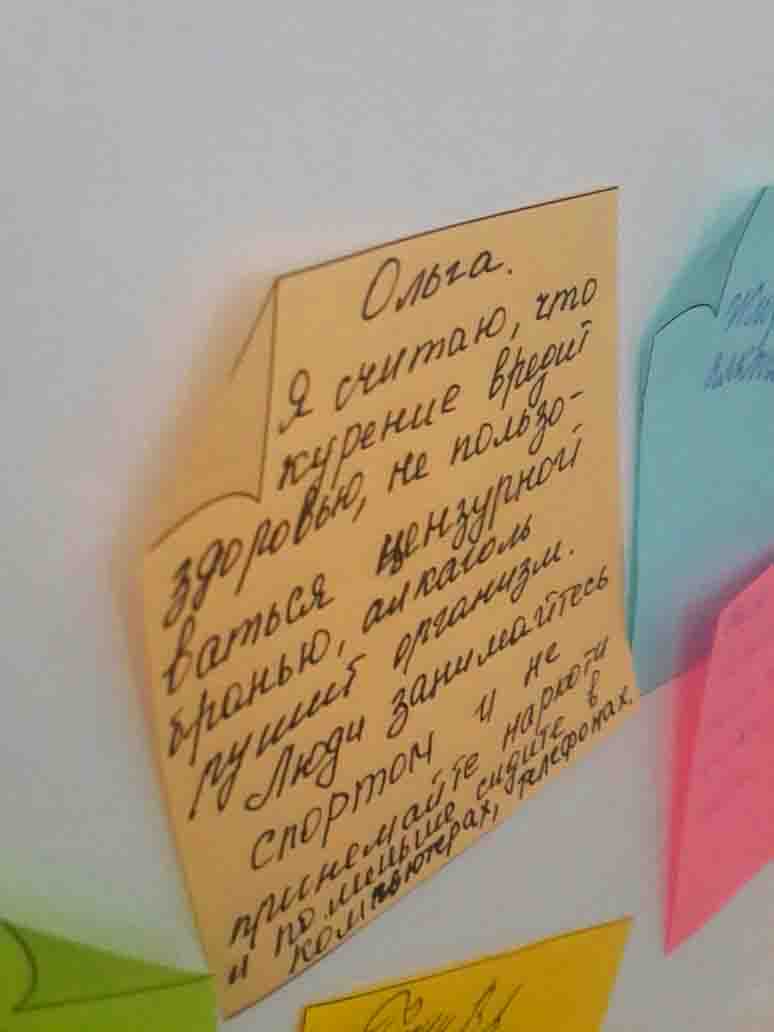 Ольга.
Я считаю, что
курение вредит
здоровью, не пользо-
ваться цензурной
бранью, алкаголь
рушит организм.
Люди занимайтесь
спортом и не
принемайте наркоти
и поменьше сидите в
компьютерах, телефонах.